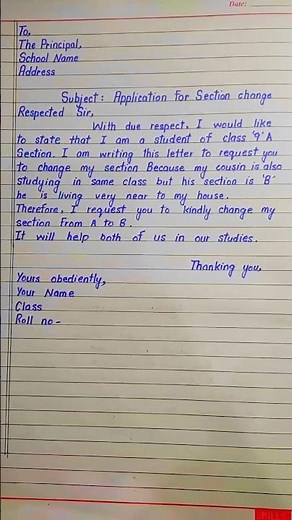 Date:
To,
The Principal,
School Name
Address
Subject: Application for Section change
Respected Sir,
With due respect, I would like
to state that I am a student of class '9' A
Section. I am writing this letter to request you
to change my section Because my cousin is also
studying in same class but his section is 'B'
he is living very near to my house.
Therefore, I request you to kindly change my
section From A to B.
It will help both of us in our studies.
Thanking you,
Yours obediently,
Your Name
Class
Roll no-